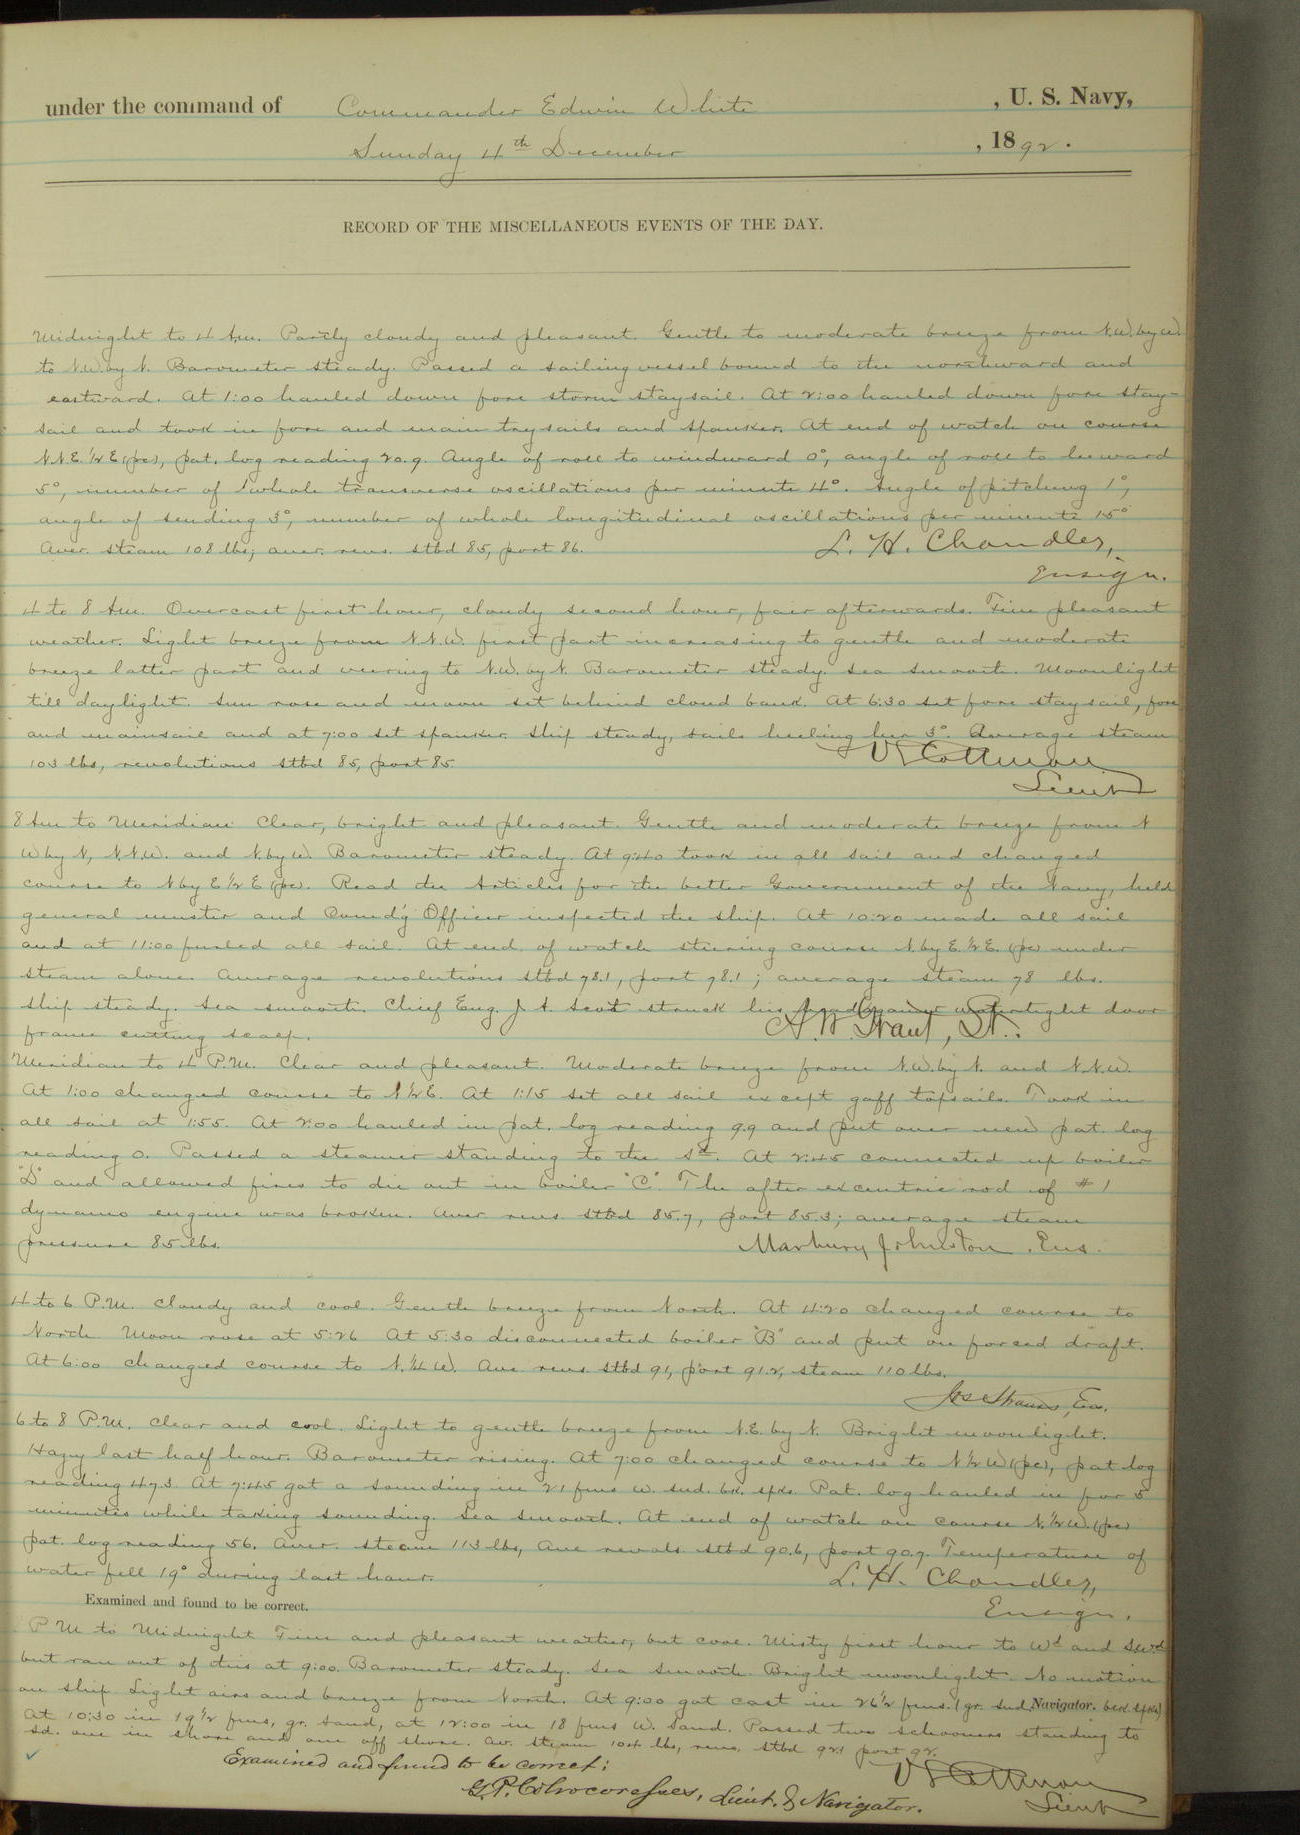 under the command of Commander Edwin White , U. S. Navy,
Sunday 4th December , 1892.
RECORD OF THE MISCELLANEOUS EVENTS OF THE DAY.
Midnight to 4 A.m. Partly cloudy and pleasant. Gentle to moderate breeze from N.W. by W.
to N.W. by N. Barometer steady. Passed a sailing vessel bound to the northward and
eastward. At 1:00 hauled down fore storm staysail. At 2:00 hauled down fore stay-
sail and took in fore and main trysails and spanker. At end of watch on course
N.N.E. 1/2 E (pc), pat. log reading 20.9. Angle of roll to windward 0°, angle of roll to leeward
5°, number of whole transverse oscillations per minute 4°. Angle of pitching 1°,
angle of sending 3°, number of whole longitudinal oscillations per minute 15°
Aver. steam 108 lbs; aver. revs. stbd 85, port 86. L. H. Chandler,
Ensign.
4 to 8 A.m. Overcast first hour, cloudy second hour, fair afterwards. Fine pleasant
weather. Light breeze from N.N.W. first part increasing to gentle and moderate
breeze latter part and veering to N.W. by N. Barometer steady. Sea smooth. Moonlight
till daylight. Sun rose and moon set behind cloud bank. At 6:30 set fore staysail, fore
and mainsail and at 7:00 set spanker. Ship steady, sails heeling her 3°. Average steam
103 lbs, revolutions stbd 85, port 85. V L Cottman
Lieut
8 Am to Meridian Clear, bright and pleasant. Gentle and moderate breeze from N
W by N, N.N.W. and N. by W. Barometer steady. At 9:40 took in all sail and changed
course to N by E 1/2 E (pc). Read the Articles for the better Government of the Navy, held
general muster and Comd'g Officer inspected the ship. At 10:20 made all sail
and at 11:00 furled all sail. At end of watch steering course N. by E. 1/2 E. (pc) under
steam alone. Average revolutions stbd 78.1, port 78.1; average steam 78 lbs.
Ship steady. Sea smooth. Chief Eng. J. A. Scot struck his head watertight door
frame cutting scalp. A. W. Grant, Lt.
Meridian to 4 P.M. Clear and pleasant. Moderate breeze from N.W. by N. and N.N.W.
At 1:00 changed course to N 1/2 E. At 1:15 set all sail except gaff topsails. Took in
all sail at 1:55. At 2:00 hauled in pat. log reading 99 and put over new pat. log
reading 0. Passed a steamer standing to the Sd. At 2:45 connected up boiler
"D" and allowed fires to die out in boiler "C". The after excentric rod of #1
dynamo engine was broken. Aver revs. stbd 85.7, port 85.3; average steam
pressure 85 lbs. Marbury Johnston, Ens.
4 to 6 P.M. Cloudy and cool. Gentle breeze from North. At 4:20 changed course to
North Moon rose at 5:26 At 5:30 disconnected boiler "B" and put on forced draft.
At 6:00 changed course to N. 1/4 W. Ave revs stbd 91, port 91.2, steam 110 lbs.
Jos Strauss, En.
6 to 8 P.M. Clear and cool. Light to gentle breeze from N.E. by N. Bright moonlight.
Hazy last half hour. Barometer rising. At 7:00 changed course to N 1/2 W (pc), pat log
reading 47.3 At 7:45 got a sounding in 21 fms w. snd. bk. spks. Pat. log hauled in for 5
minutes while taking sounding. Sea smooth. At end of watch on course N. 1/2 W. (pc)
pat. log reading 56. Aver. steam 113 lbs, Ave revols stbd 90.6, port 90.7. Temperature of
water fell 19° during last hour. L. H. Chandler,
Examined and found to be correct. Ensign.
P M to Midnight Fine and pleasant weather, but cool. Misty first hour to Wd and SWd
but ran out of this at 9:00. Barometer steady. Sea smooth. Bright moonlight. No motion
on ship Light airs and breeze from North. At 9:00 got cast in 26 1/2 fms. (gr. snd. Navigator. bck spks)
At 10:30 in 19 1/2 fms, gr. sand, at 12:00 in 18 fms W. Sand. Passed two schooners standing to
Sd. one in shore and one off shore. Av. steam 104 lbs, revs. stbd port 92.
Examined and found to be correct: V L Cottman
G. P. Colvocoresses, Lieut. & Navigator. Lieut